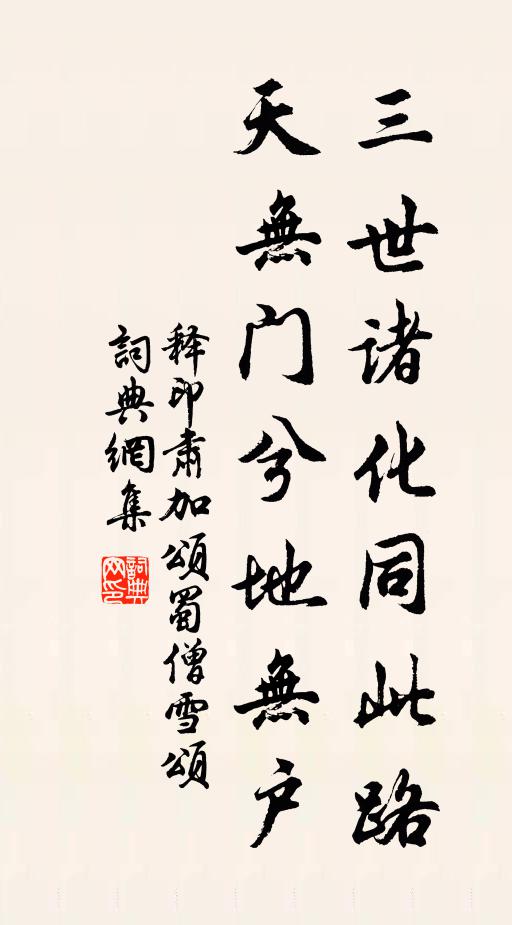 三世诸化同此路
天無门兮地無户
释印肃加頌蜀僧雪頌
詞典網集
詞典网印